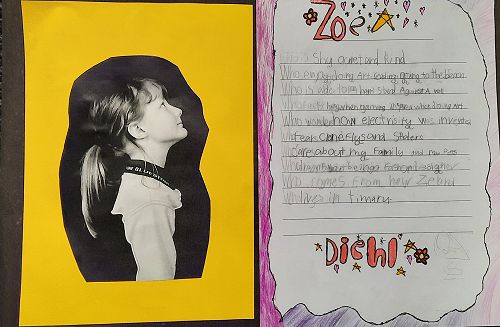 Zoe
is shy quiet and kind
Who enjoy doing Art reading going to the beach
Who is able to hand stand Agianst a wall
Who feels when doing Art
Who wonder how electrisity was invented
Who Fears and Spiders
Who care about my Family and
Who dream being a Fashon Desigher
Who comes From New Zeland
Who lives in timaru.
Diehl